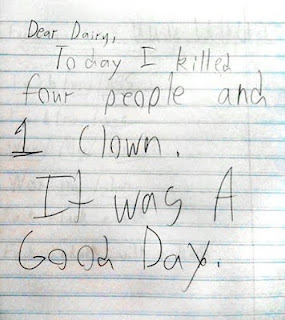 Dear Dairy,
Today I killed
four people and
1 Clown.
It was A
Good Day.